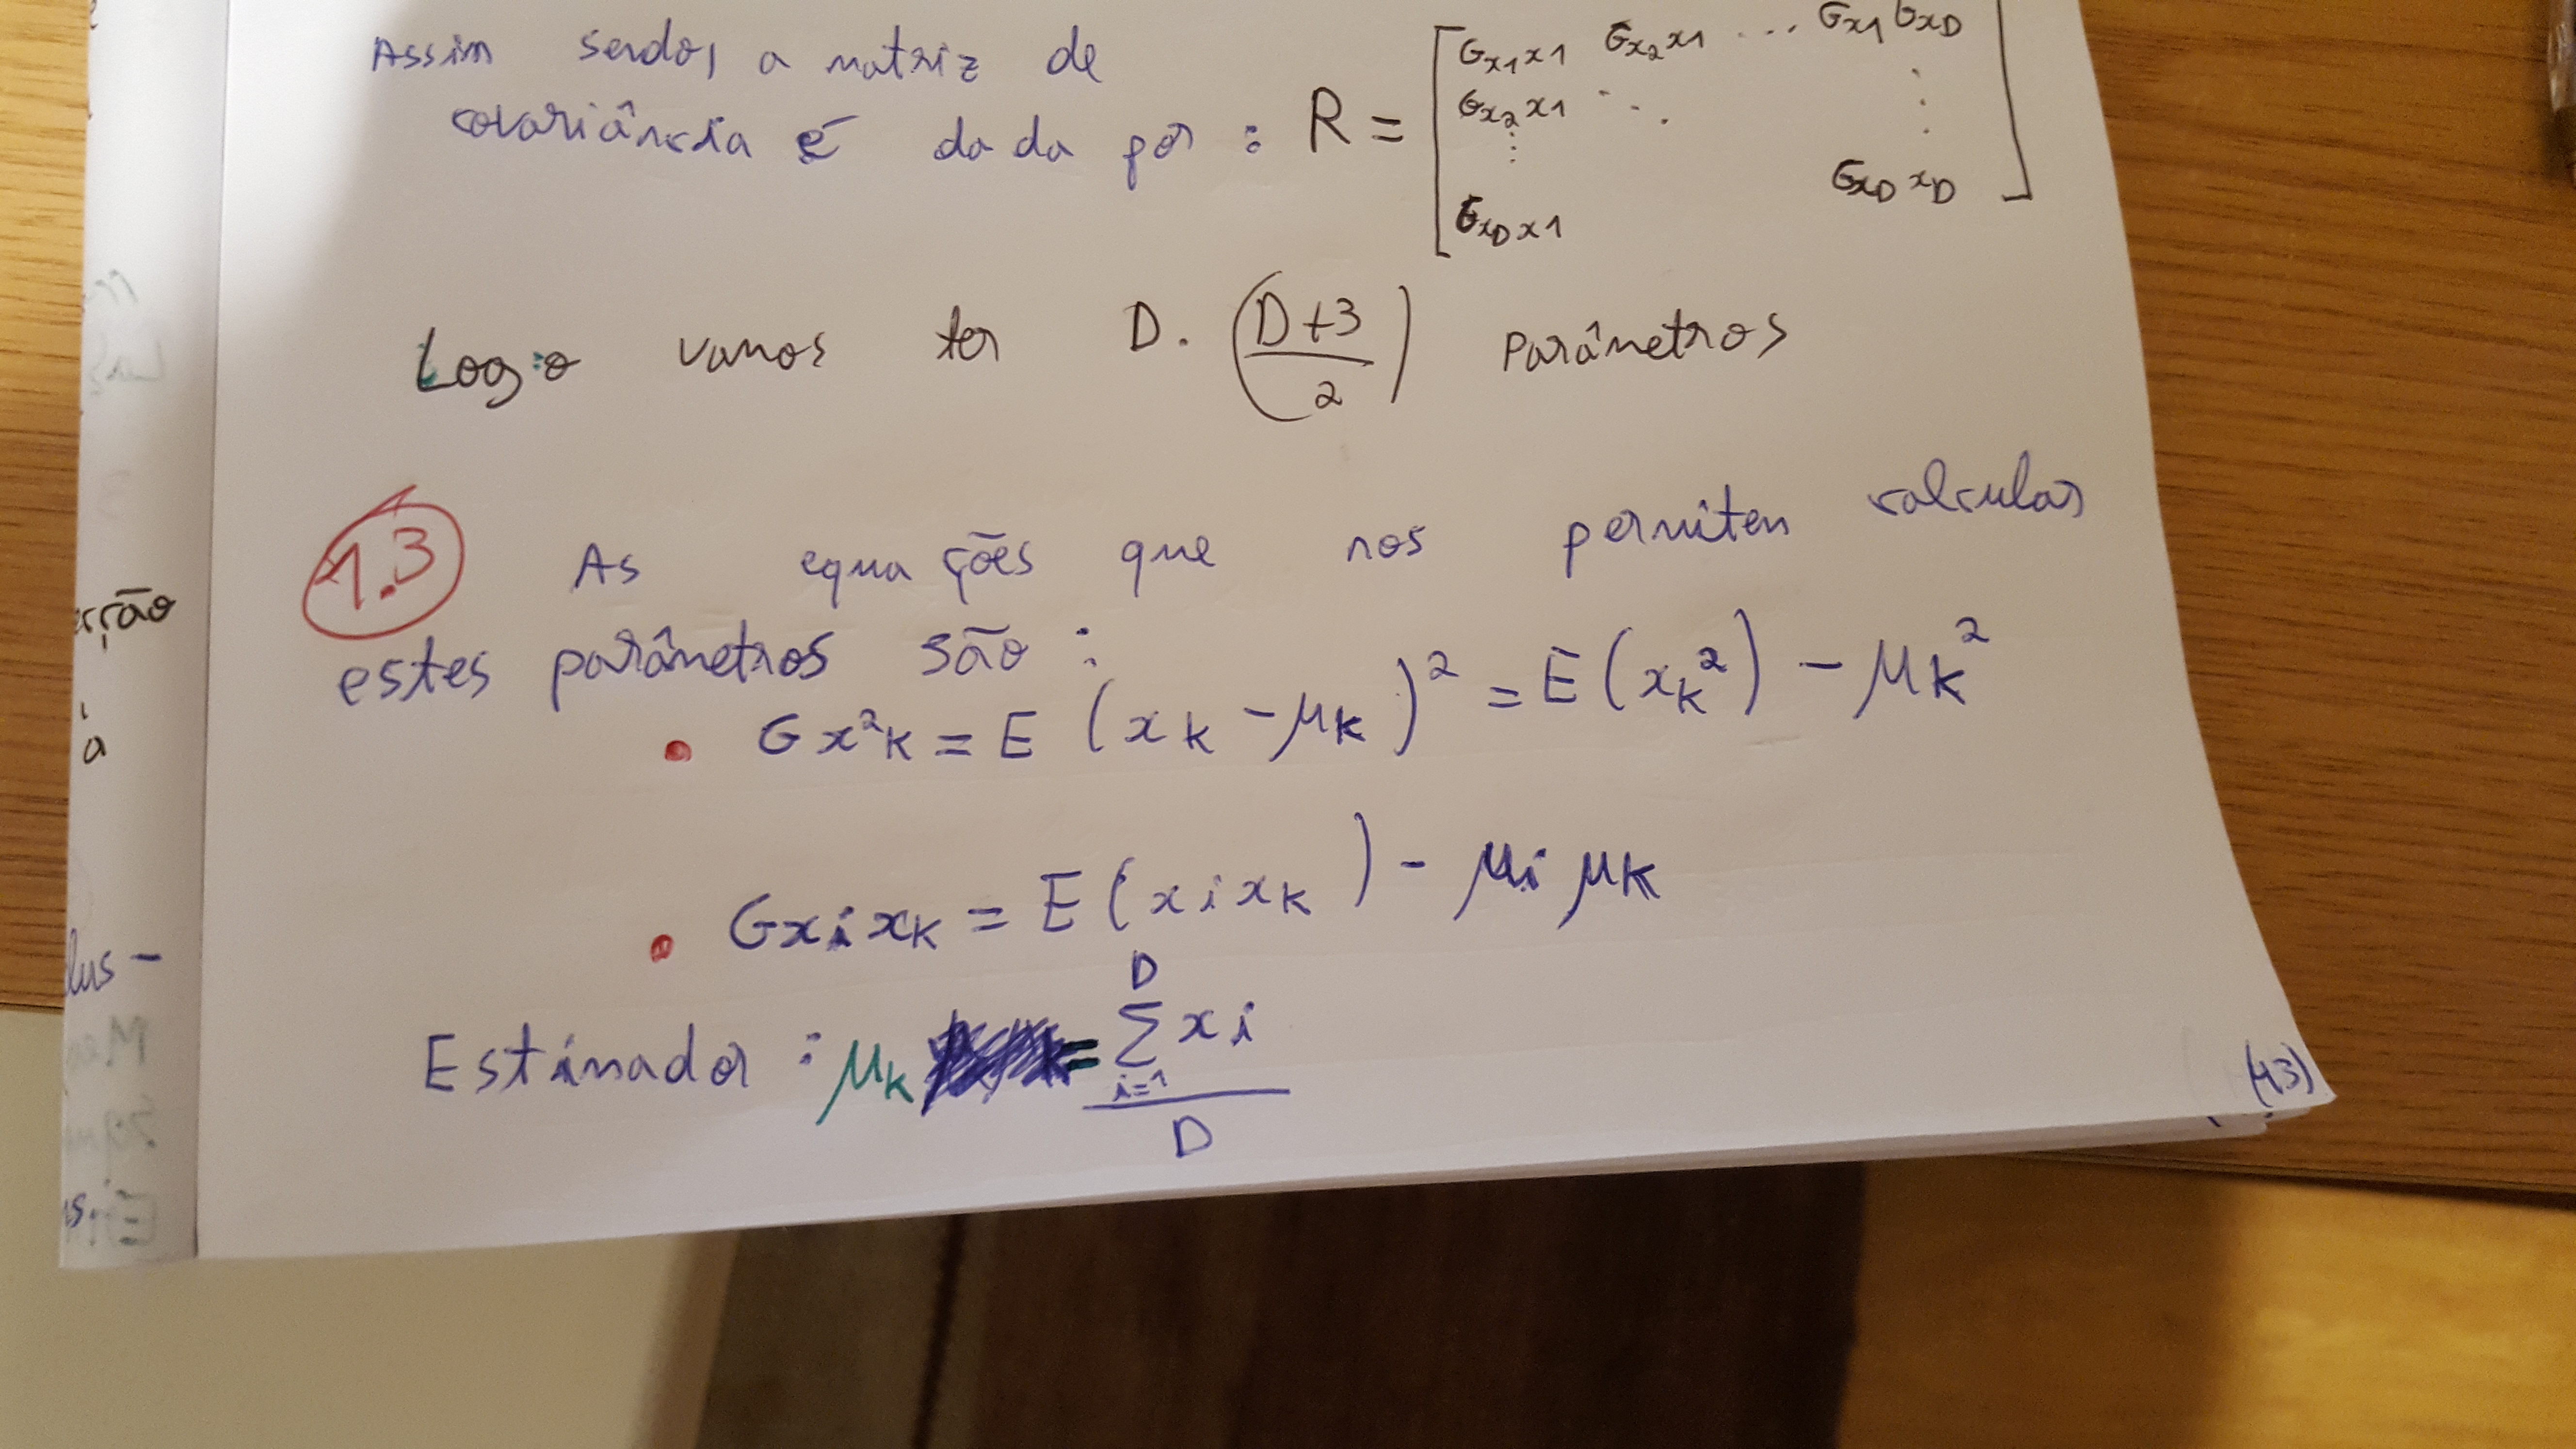 Assim sendo, a matriz de
covariância é dada por : R = [ σx1x1 σx2x1 ... σx1σxD
σx2x1 ⋱ ⋮
⋮
σxDx1 σxDxD ]
Logo vamos ter D. (D+3 / 2) parâmetros
1.3 As equações que nos permitem calcular
estes parâmetros são :
• σx²k = E (xk - μk)² = E(xk²) - μk²
• σxixk = E(xixk) - μi μk
Estimador : μk = ∑ i=1 D xi / D
(43)
erção
à
lus-
us.